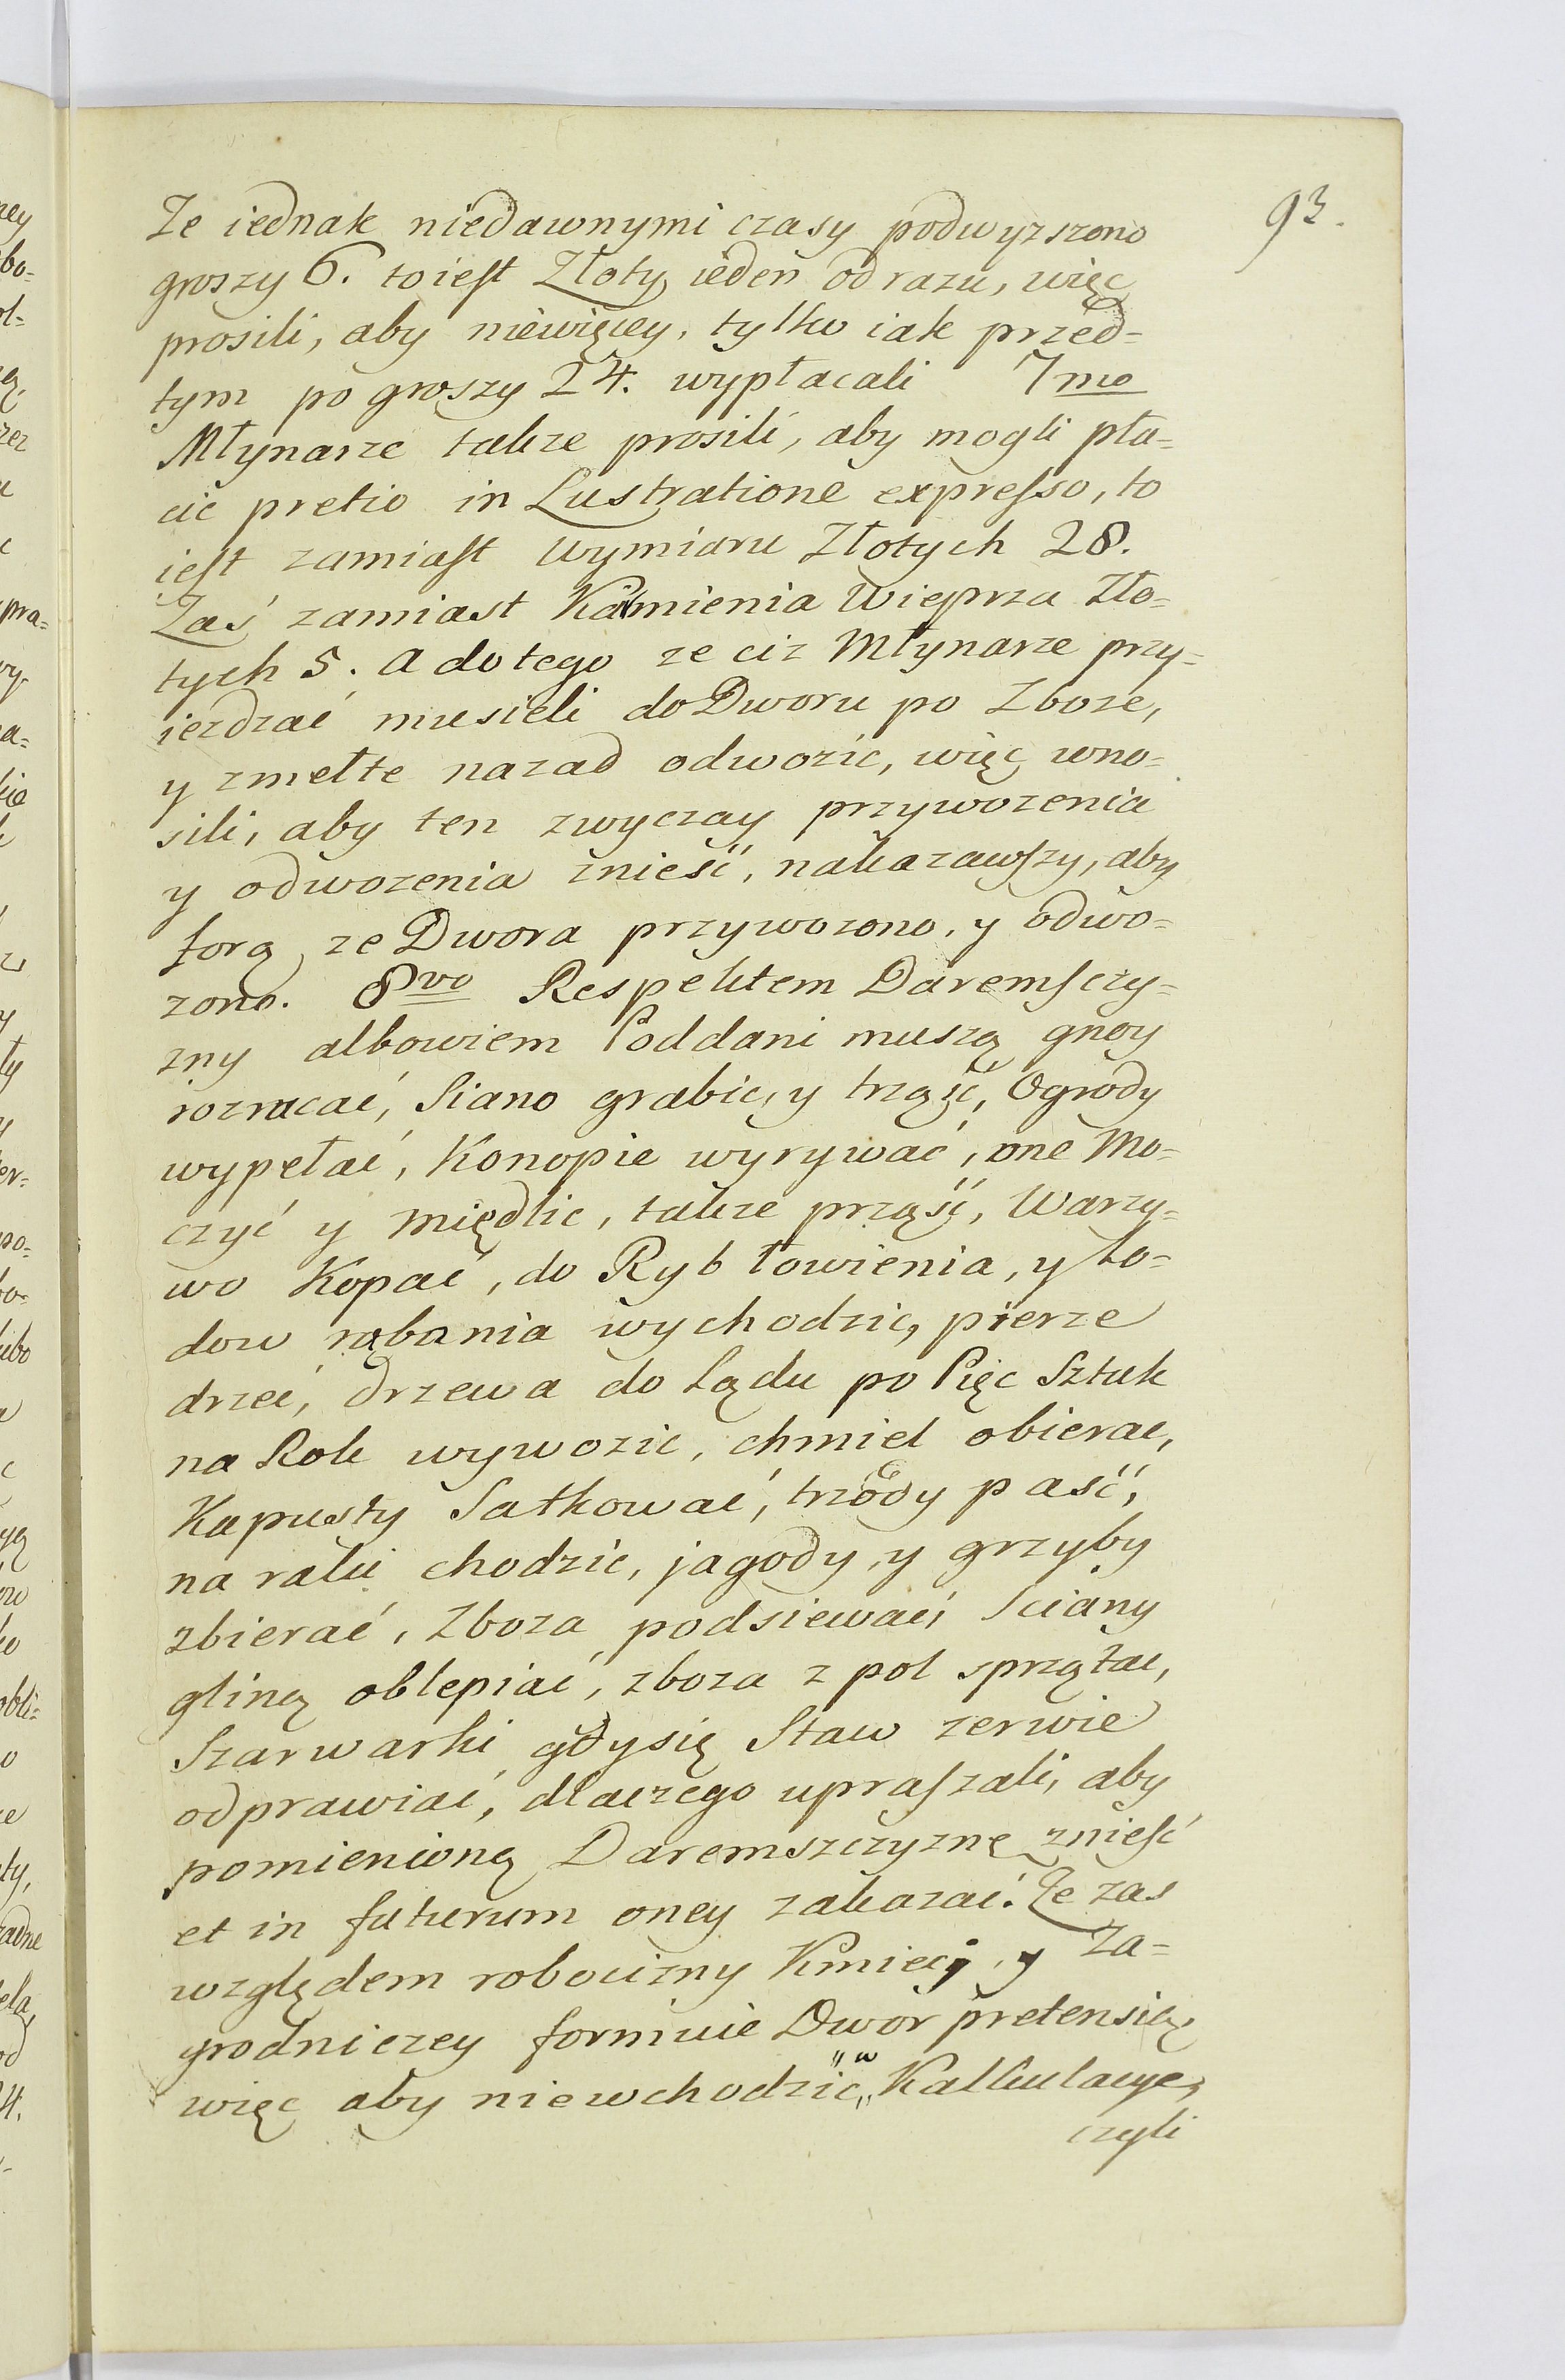 93.
Ze iednak niedawnymi czasy podwyzszono
groszy 6. to iest Złoty ieden od razu, więc
prosili, aby niewięcey, tylko iak przed=
tym po groszy 24. wypłacali 7mo
Młynarze takze prosili, aby mogli pła=
cic pretio in Lustratione expresso, to
iest zamiast Wymiaru Złotych 28.
Zaś zamiast Kamienia Wieprza Zło=
tych 5. a do tego ze ciz Młynarze przy=
iezdzać musieli do Dworu po Zboze,
y zmełte nazad odwozic, więc wno=
sili, aby ten zwyczay przywozenia
y odwozenia znieść, nakazawszy, aby
forą ze Dwora przywozono, y odwo=
zono. 8vo Respektem Daremsczy=
zny albowiem Poddani muszą gnoy
rozrucać, Siano grabic, y trząść, Ogrody
wypełać, Konopie wyrywać, one Mo=
czyć y międlic, takze prząść, Warzy=
wo Kopać, do Ryb łowienia, y Lo=
dow rąbania wychodzic, pierze
drzeć, drzewa do Lądu po Pięc Sztuk
na Rok wywozic, chmiel obierac,
Kapusty Satkowac, trzody paść,
na raki chodzic, jagody, y grzyby
zbierać, Zboza podsiewać, Sciany
gliną oblepiać, zboza z pol sprzątac,
Szarwarki, gdy się Staw zerwie
odprawiać, dlaczego upraszali, aby
pomienioną Daremszczyznę znieść
et in futurum oney zakazać. Ze zas
względem robocizny Kmiecy, y Za=
grodniczey formuie Dwor pretensią,
więc aby niewchodzić „w Kalkulacye,
czyli